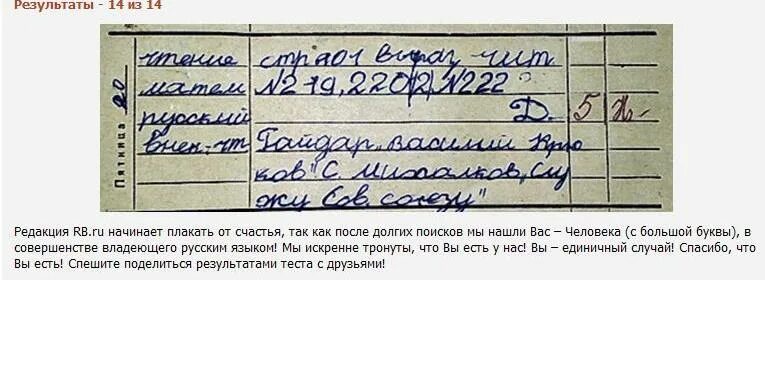 Результаты - 14 из 14
Пятница 20
чтение стр 201 выраз чит
матем №219, 220(2) №222
русский Д. 5
внек. чт Гайдар "Василий Крю
ков" С. Михалков "Слу
жу Сов. союзу"
Редакция RB.ru начинает плакать от счастья, так как после долгих поисков мы нашли Вас – Человека (с большой буквы), в
совершенстве владеющего русским языком! Мы искренне тронуты, что Вы есть у нас! Вы – единичный случай! Спасибо, что
Вы есть! Спешите поделиться результатами теста с друзьями!